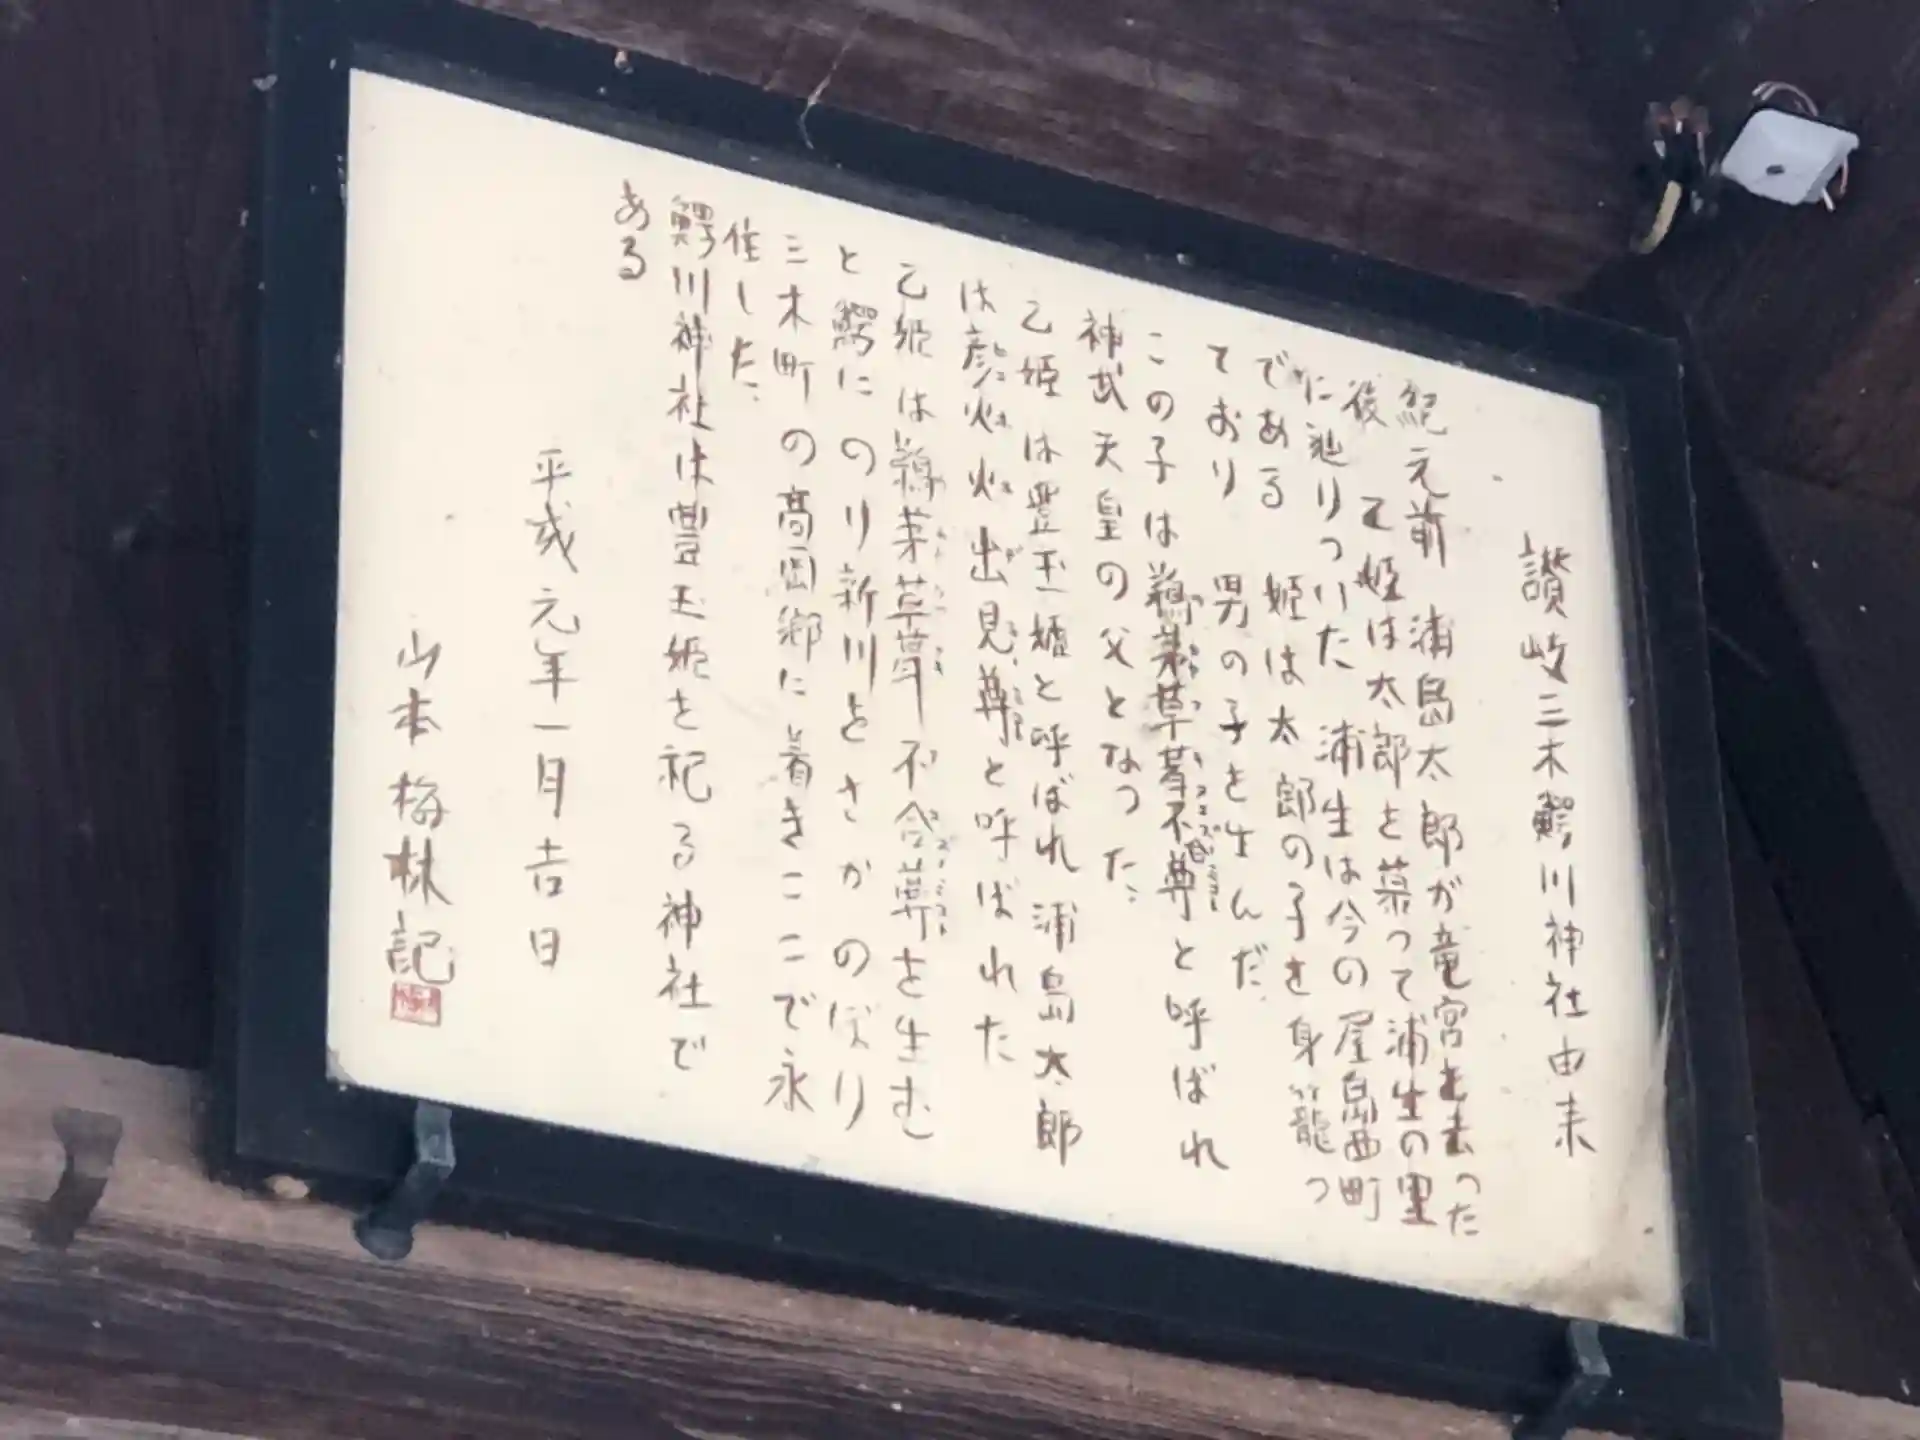 讃岐三木鰐川神社由来
紀元前 浦島太郎が竜宮を去った
後 乙姫は太郎を慕って浦生の里
に辿りついた 浦生は今の屋島西町
である 姫は太郎の子を身籠っ
ており 男の子を生んだ
この子は鵜茅草葺不合尊と呼ばれ
神武天皇の父となった
乙姫は豊玉姫と呼ばれ 浦島太郎
は彦火火出見尊と呼ばれた
乙姫は鵜茅草葺不合尊を生む
と鰐にのり新川をさかのぼり
三木町の高岡郷に着きここで永
住した
鰐川神社は豊玉姫を祀る神社で
ある
平成元年一月吉日
山本梅林記